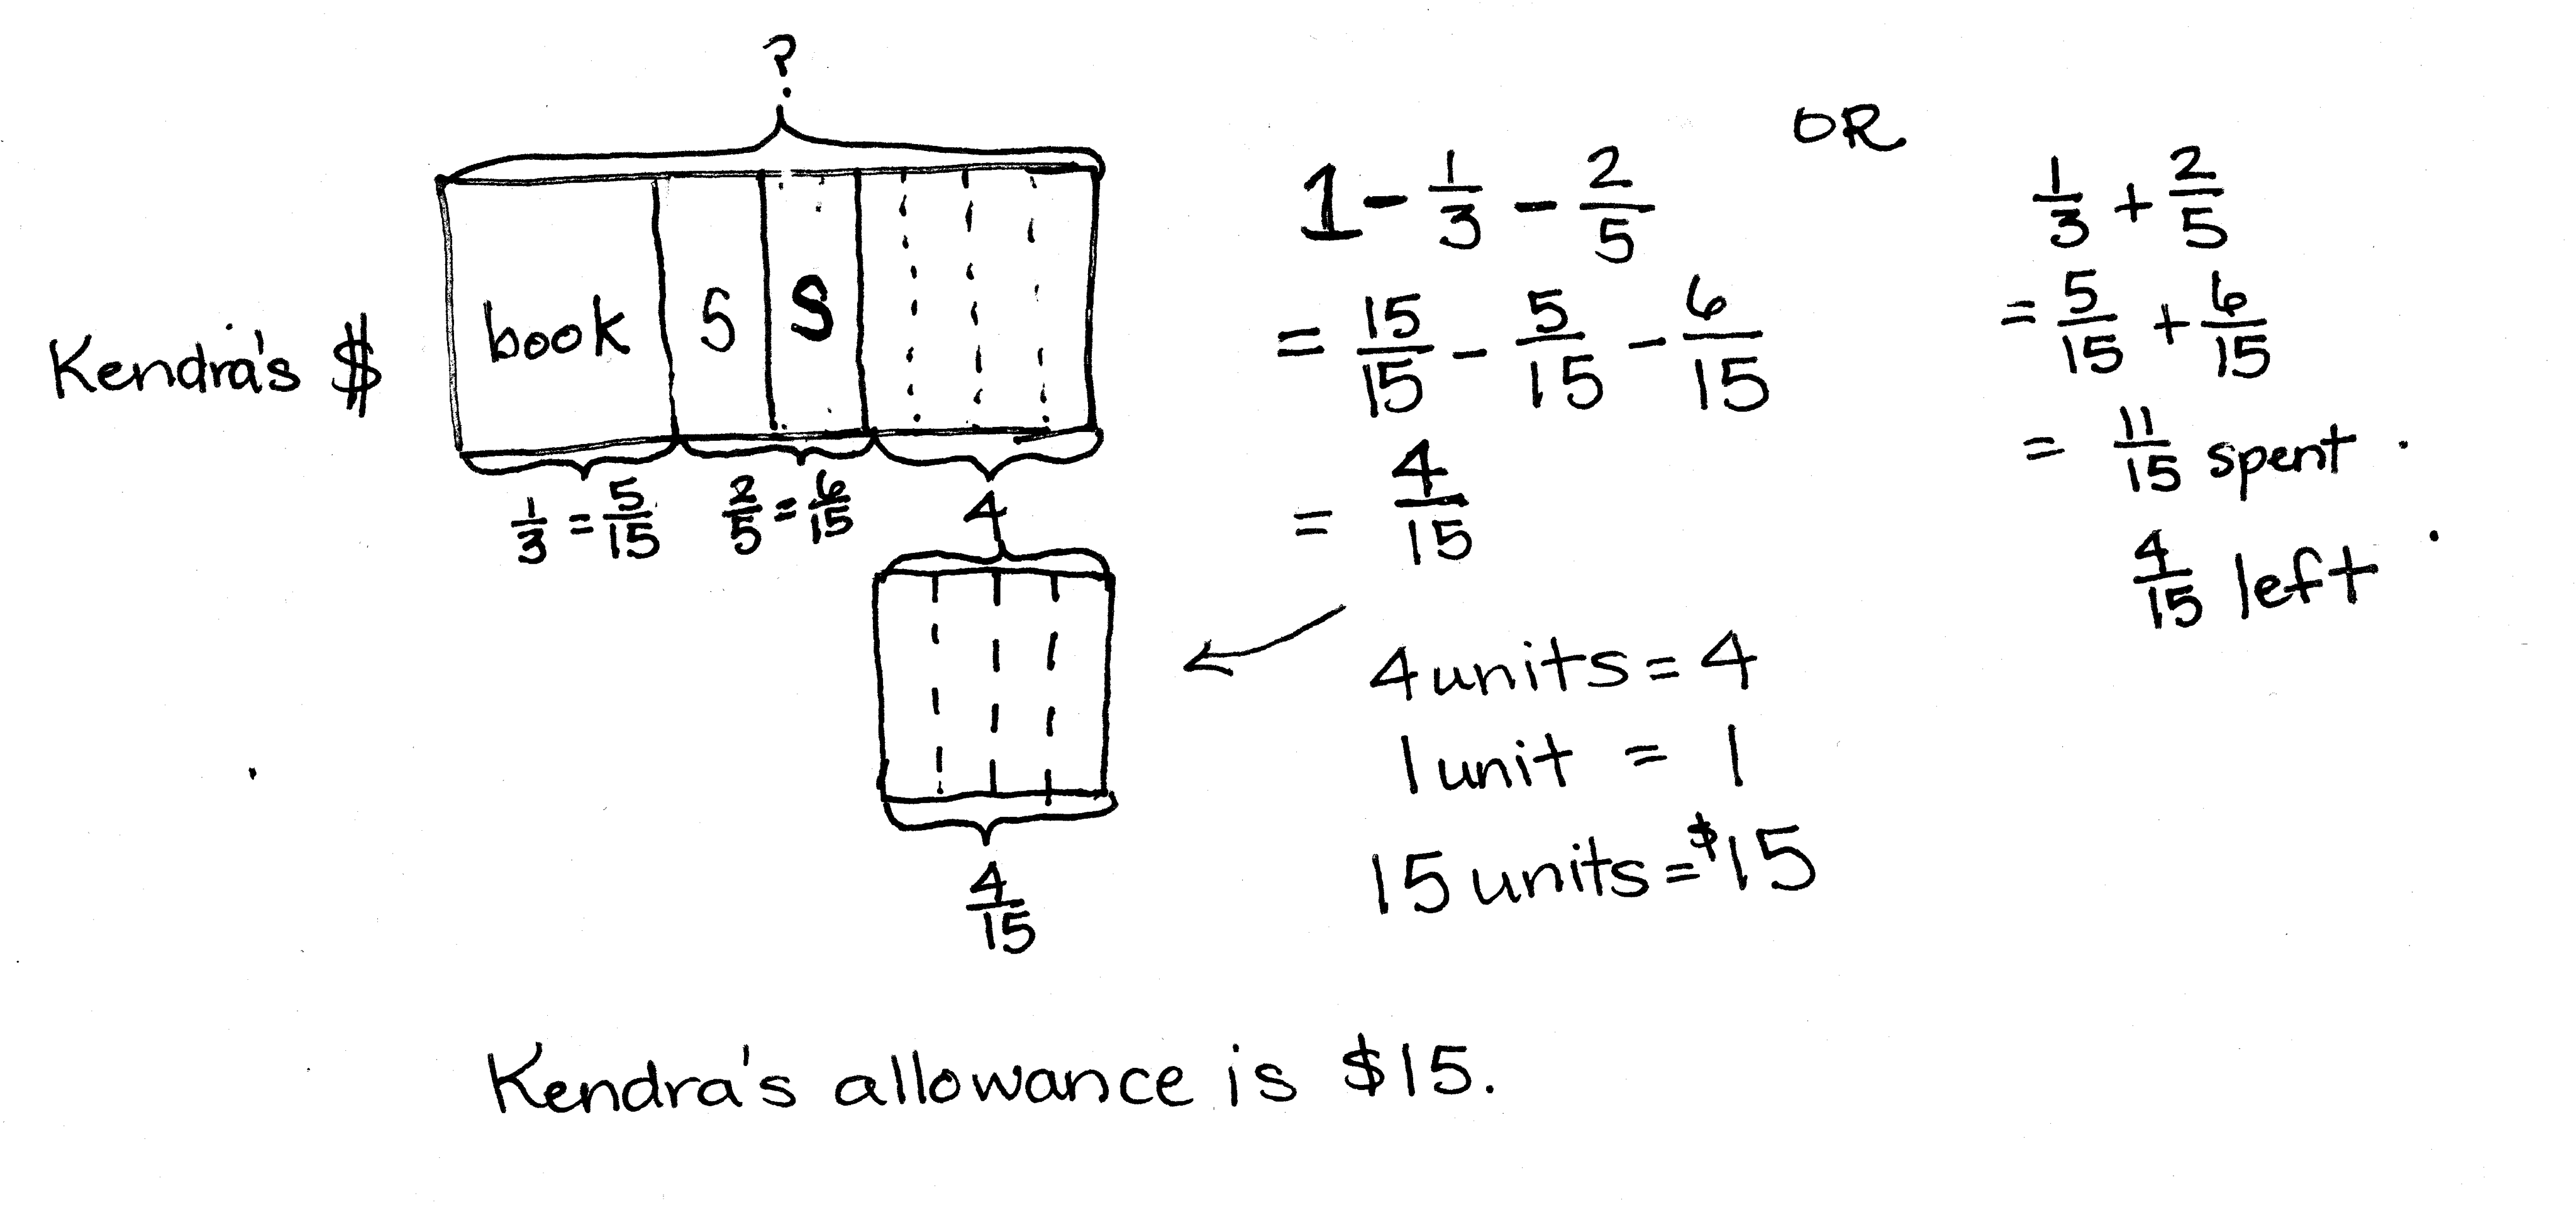 ?
Kendra's $
book S S
1/3 = 5/15
2/5 = 6/15
4
4/15
1 - 1/3 - 2/5
= 15/15 - 5/15 - 6/15
= 4/15
4 units = 4
1 unit = 1
15 units = $15
OR
1/3 + 2/5
= 5/15 + 6/15
= 11/15 spent
4/15 left
Kendra's allowance is $15.